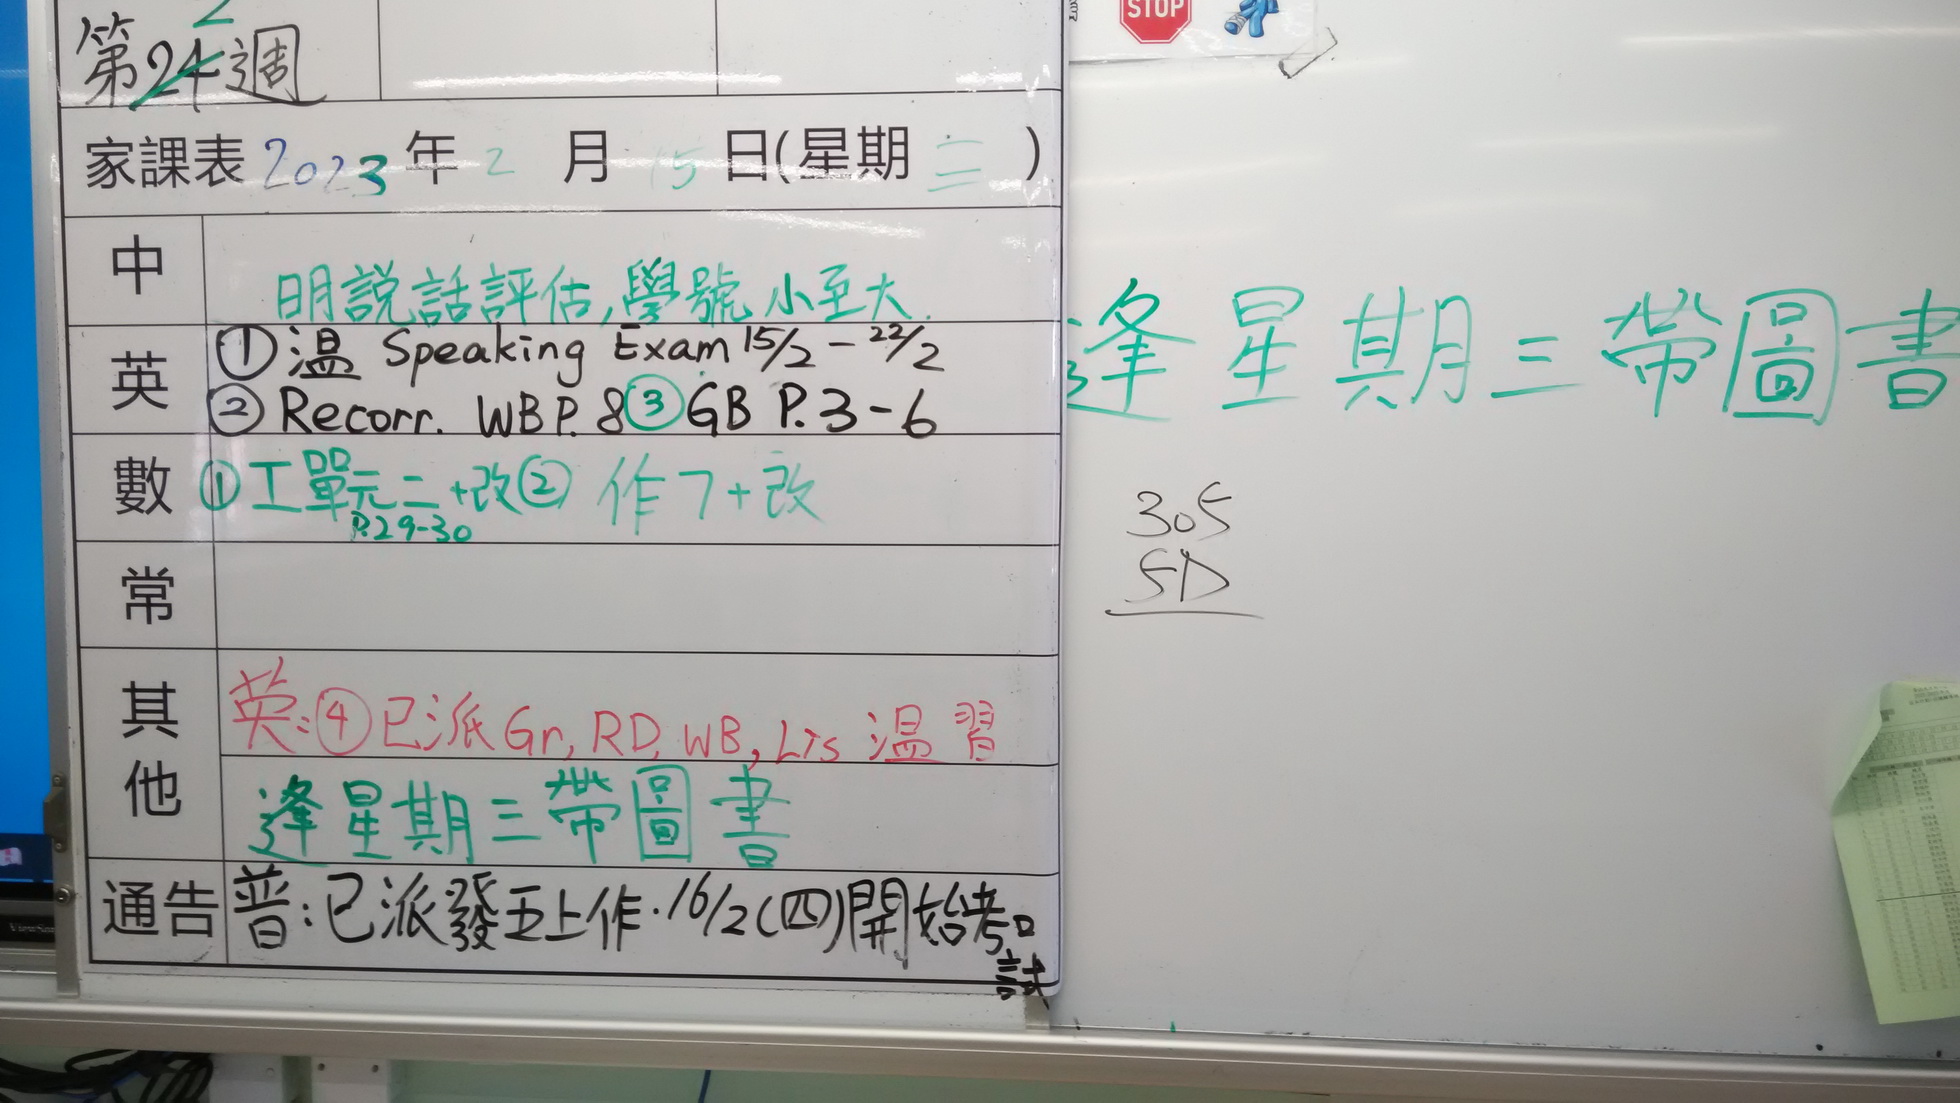 2
第24週
STOP
家課表 2023 年 2 月 15 日(星期 三 )
中 明說話評估, 學號小至大.
英 ① 溫 Speaking Exam 15/2 - 22/2
② Recorr. WB P. 8 ③ GB P. 3 - 6
數 ① 工單元二 + 改 ② 作 7 + 改
P.29-30
常
其他 英: ④ 已派 Gr, RD, WB, Lis 溫習
逢星期三帶圖書
通告 普: 已派發五上作. 16/2 (四) 開始考試
逢星期三帶圖書
305
5D